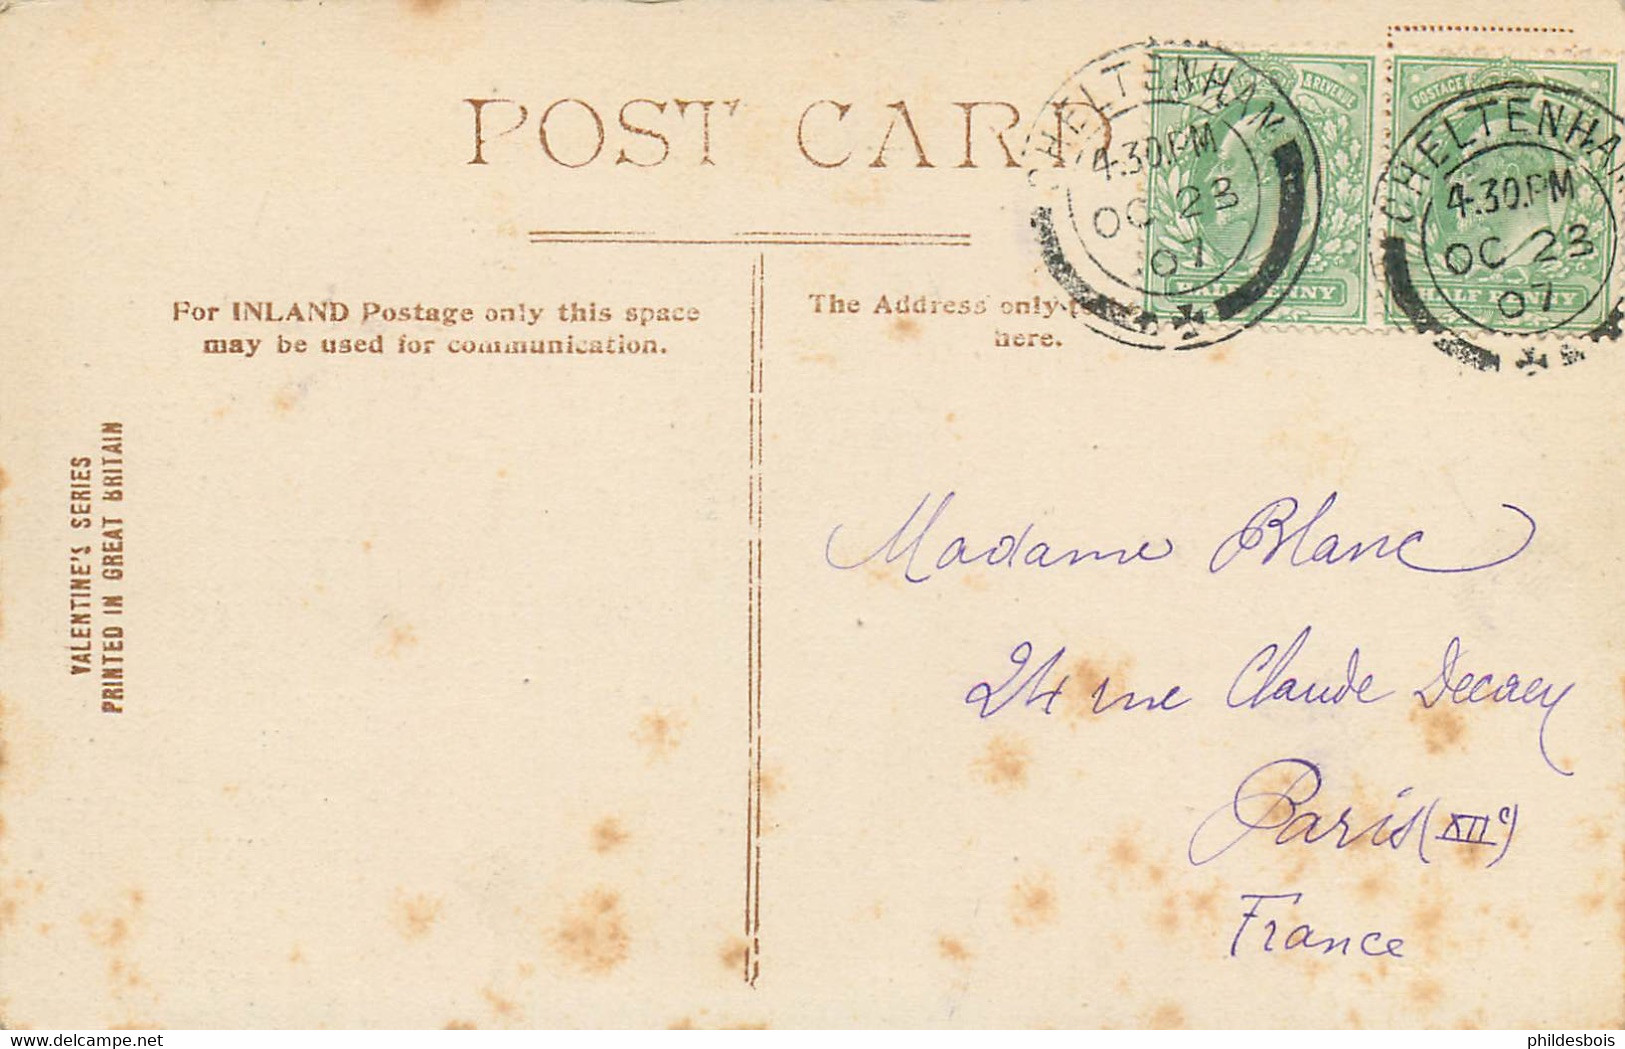 POST CARD
CHELTENHAM
4.30.PM
OC 23
07
CHELTENHAM
4.30.PM
OC 23
07
POSTAGE
& REVENUE
HALF PENNY
HALF PENNY
For INLAND Postage only this space
may be used for communication.
The Address only
here.
VALENTINE'S SERIES
PRINTED IN GREAT BRITAIN
Madame Blanc
24 rue Claude Decaen
Paris (XIIe)
France
delcampe.net
phildesbois